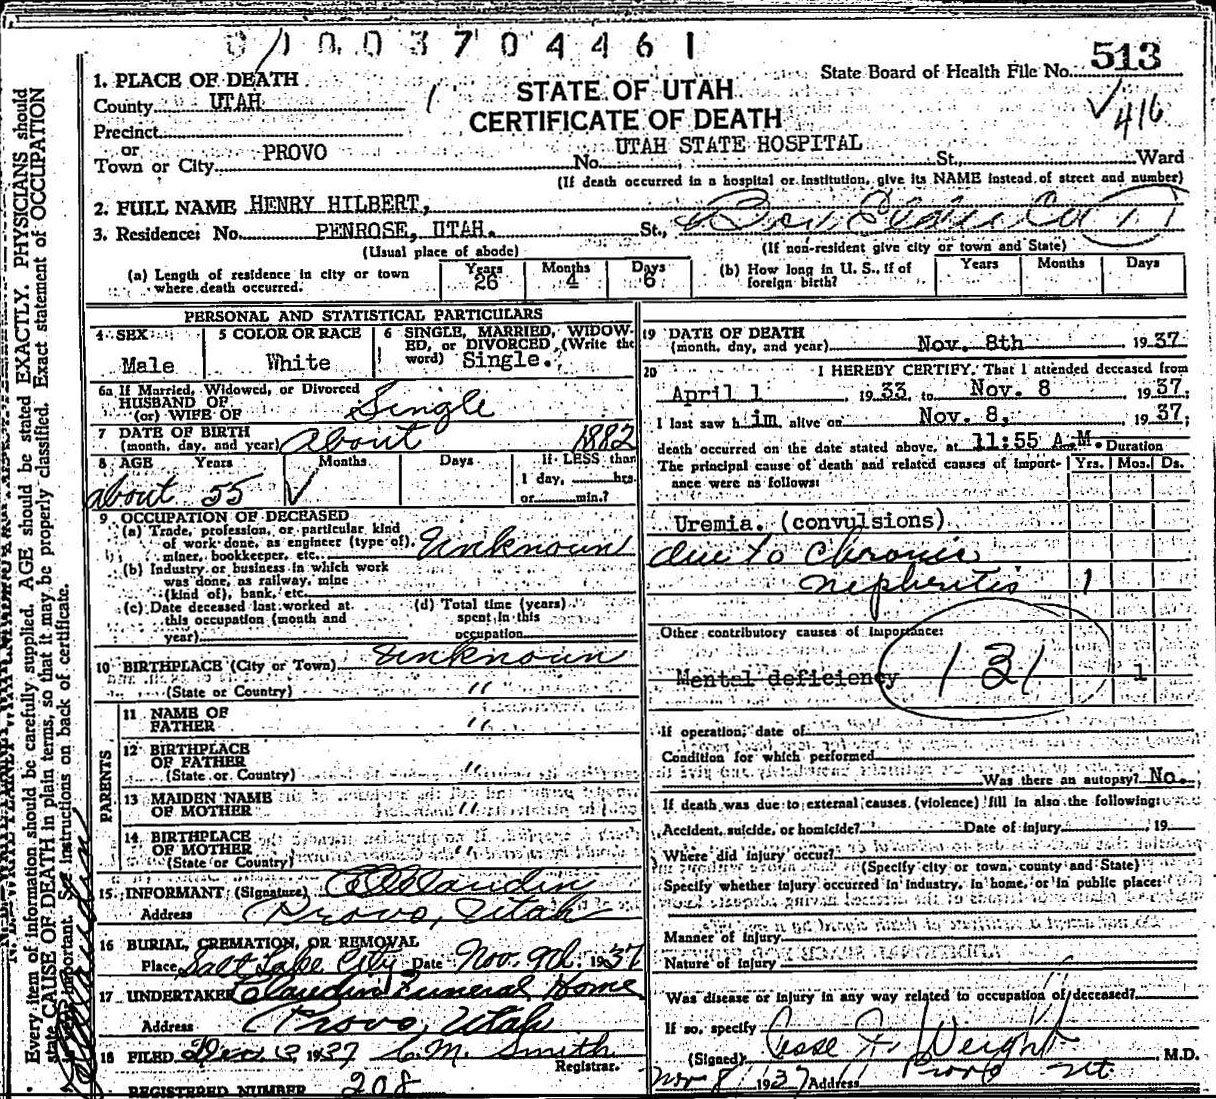 0/1003704461
513
State Board of Health File No.
416
1. PLACE OF DEATH
County UTAH
STATE OF UTAH
CERTIFICATE OF DEATH
Precinct
or
Town or City PROVO No. UTAH STATE HOSPITAL St., Ward
(If death occurred in a hospital or institution, give its NAME instead of street and number)
2. FULL NAME HENRY HILBERT,
3. Residence: No. PENROSE, UTAH. St., Box Elder Co
(Usual place of abode) (If non-resident give city or town and State)
(a) Length of residence in city or town where death occurred. Years 26 Months 4 Days 6
(b) How long in U. S., if of foreign birth? Years Months Days
PERSONAL AND STATISTICAL PARTICULARS
4 SEX Male
5 COLOR OR RACE White
6 SINGLE, MARRIED, WIDOWED, OR DIVORCED (Write the word) Single.
6a If Married, Widowed, or Divorced
HUSBAND OF
(or) WIFE OF Single
7 DATE OF BIRTH
(month, day, and year) About 1882
8 AGE Years Months Days If LESS than
1 day, hrs.
or min.?
about 55
9 OCCUPATION OF DECEASED
(a) Trade, profession, or particular kind
of work done, as engineer (type of),
miner, bookkeeper, etc. Unknown
(b) Industry or business in which work
was done, as railway, mine
(kind of), bank, etc.
(c) Date deceased last worked at
this occupation (month and
year)
(d) Total time (years)
spent in this
occupation
10 BIRTHPLACE (City or Town) Unknown
(State or Country) "
PARENTS
11 NAME OF
FATHER "
12 BIRTHPLACE
OF FATHER
(State or Country) "
13 MAIDEN NAME
OF MOTHER "
14 BIRTHPLACE
OF MOTHER
(State or Country) "
15 INFORMANT (Signature) Claudin
Address Provo, Utah
16 BURIAL, CREMATION, OR REMOVAL
Place Salt Lake City Date Nov. 9th 1937
17 UNDERTAKER Claudin Funeral Home
Address Provo, Utah
18 FILED Dec 3 1937 C.M. Smith
Registrar.
REGISTERED NUMBER 208
19 DATE OF DEATH
(month, day, and year) Nov. 8th 1937
20 I HEREBY CERTIFY, That I attended deceased from
April 1, 1933 to Nov. 8 1937,
I last saw h im alive on Nov. 8, 1937;
death occurred on the date stated above, at 11:55 A.M. Duration
The principal cause of death and related causes of importance were as follows: Yrs. Mos. Ds.
Uremia. (convulsions)
due to chronic
nephritis 1
Other contributory causes of importance:
Mental deficiency 131 1
If operation, date of
Condition for which performed
Was there an autopsy? No.
If death was due to external causes (violence) fill in also the following:
Accident, suicide, or homicide? Date of injury 19
Where did injury occur?
(Specify city or town, county and State)
Specify whether injury occurred in industry, in home, or in public place:
Manner of injury
Nature of injury
Was disease or injury in any way related to occupation of deceased?
If so, specify
(Signed) Jesse J. Weight M.D.
Nov 8 1937 Address Provo Ut.
Every item of information should be carefully supplied. AGE should be stated EXACTLY. PHYSICIANS should
state CAUSE OF DEATH in plain terms, so that it may be properly classified. Exact statement of OCCUPATION
important. See instructions on back of certificate.